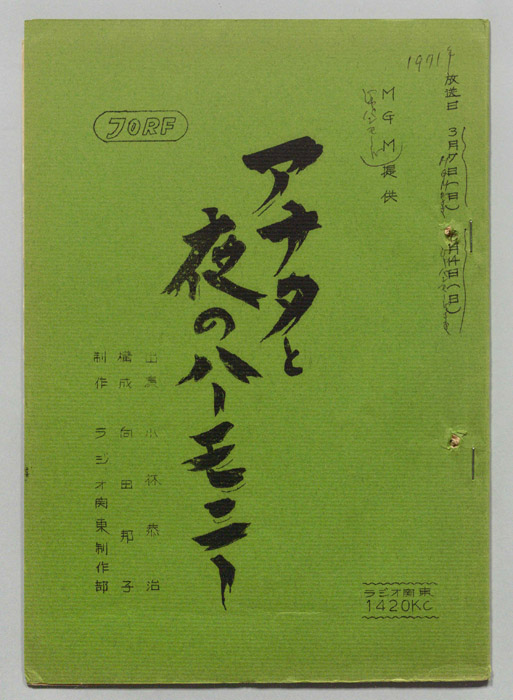 1971年
放送日 3月7日(日)
月14日(日)
MGM提供
JORF
アナタと
夜のハーモニー
出演 小林恭治
構成 向田邦子
制作 ラジオ関東制作部
ラジオ関東
1420KC